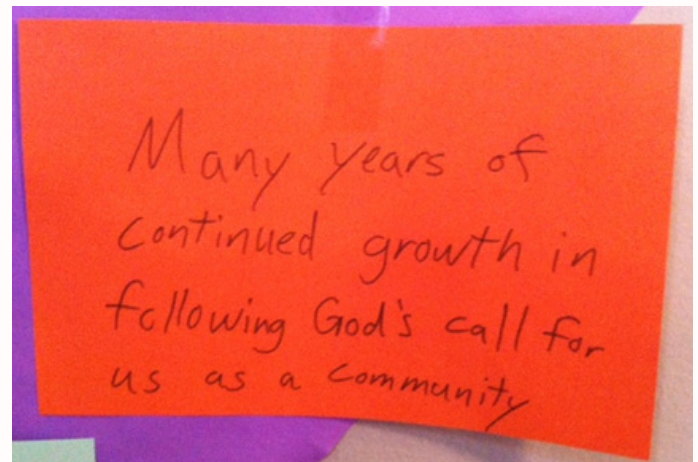 Many years of
continued growth in
following God's call for
us as a community